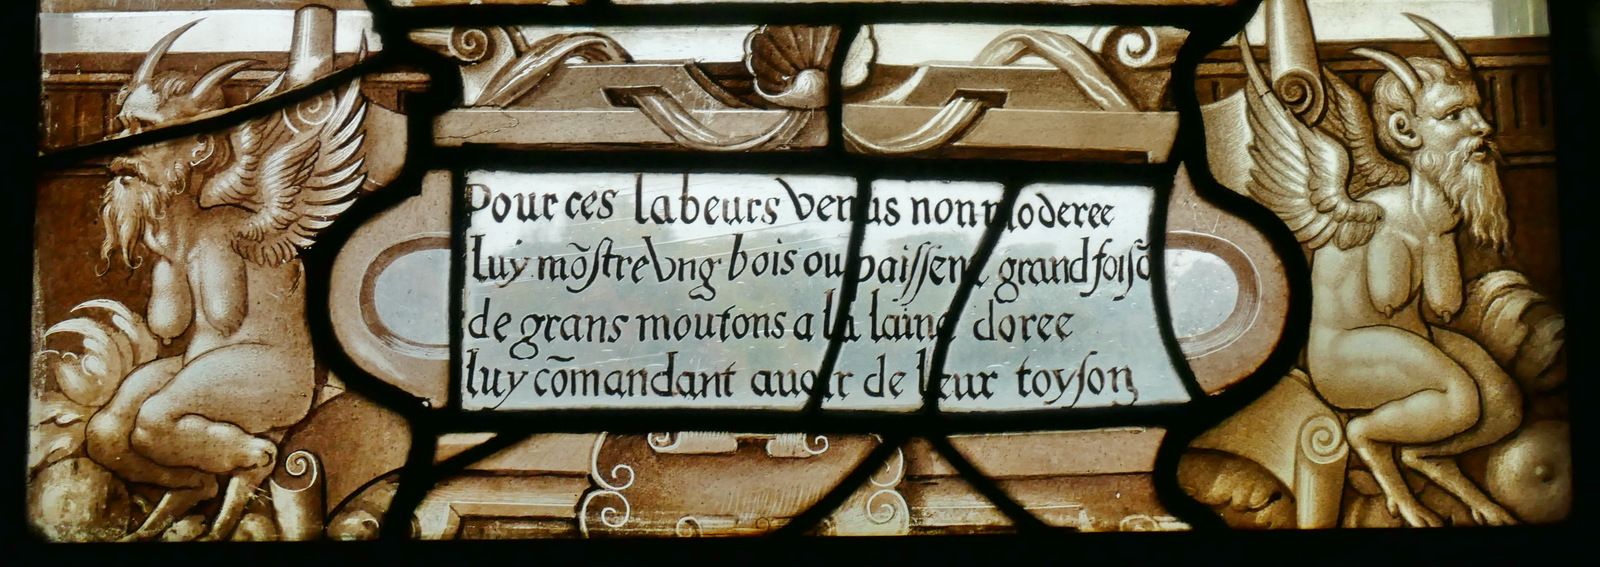 Pour ces labeurs Venus non moderee
luy mõſtre Vng bois ou paiſſent grand foiſõ
de grans moutons a la laine doree
luy cõmandant auoir de leur toyſon